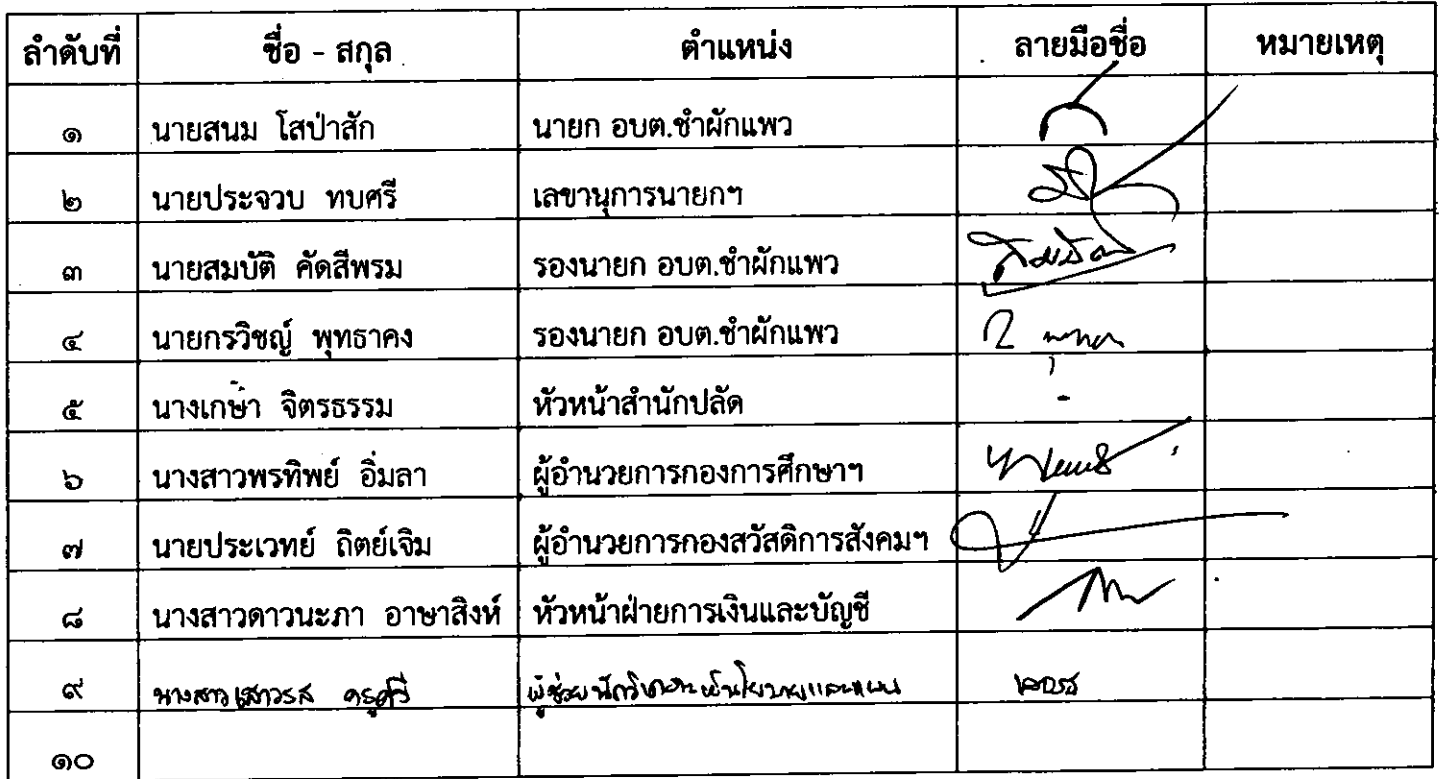 ลำดับที่ ชื่อ - สกุล ตำแหน่ง ลายมือชื่อ หมายเหตุ
๑ นายสนม โสป่าสัก นายก อบต.ชำผักแพว
๒ นายประจวบ ทบศรี เลขานุการนายกฯ
๓ นายสมบัติ คัดสีพรม รองนายก อบต.ชำผักแพว สมบัติ
๔ นายกรวิชญ์ พุทธาคง รองนายก อบต.ชำผักแพว
๕ นางเกษ้า จิตรธรรม หัวหน้าสำนักปลัด -
๖ นางสาวพรทิพย์ อิ่มลา ผู้อำนวยการกองการศึกษาฯ
๗ นายประเวทย์ ถิตย์เจิม ผู้อำนวยการกองสวัสดิการสังคมฯ
๘ นางสาวดาวนะภา อาษาสิงห์ หัวหน้าฝ่ายการเงินและบัญชี
๙ นางสาวเสาวรส ผู้ช่วยนักวิเคราะห์นโยบายและแผน
๑๐